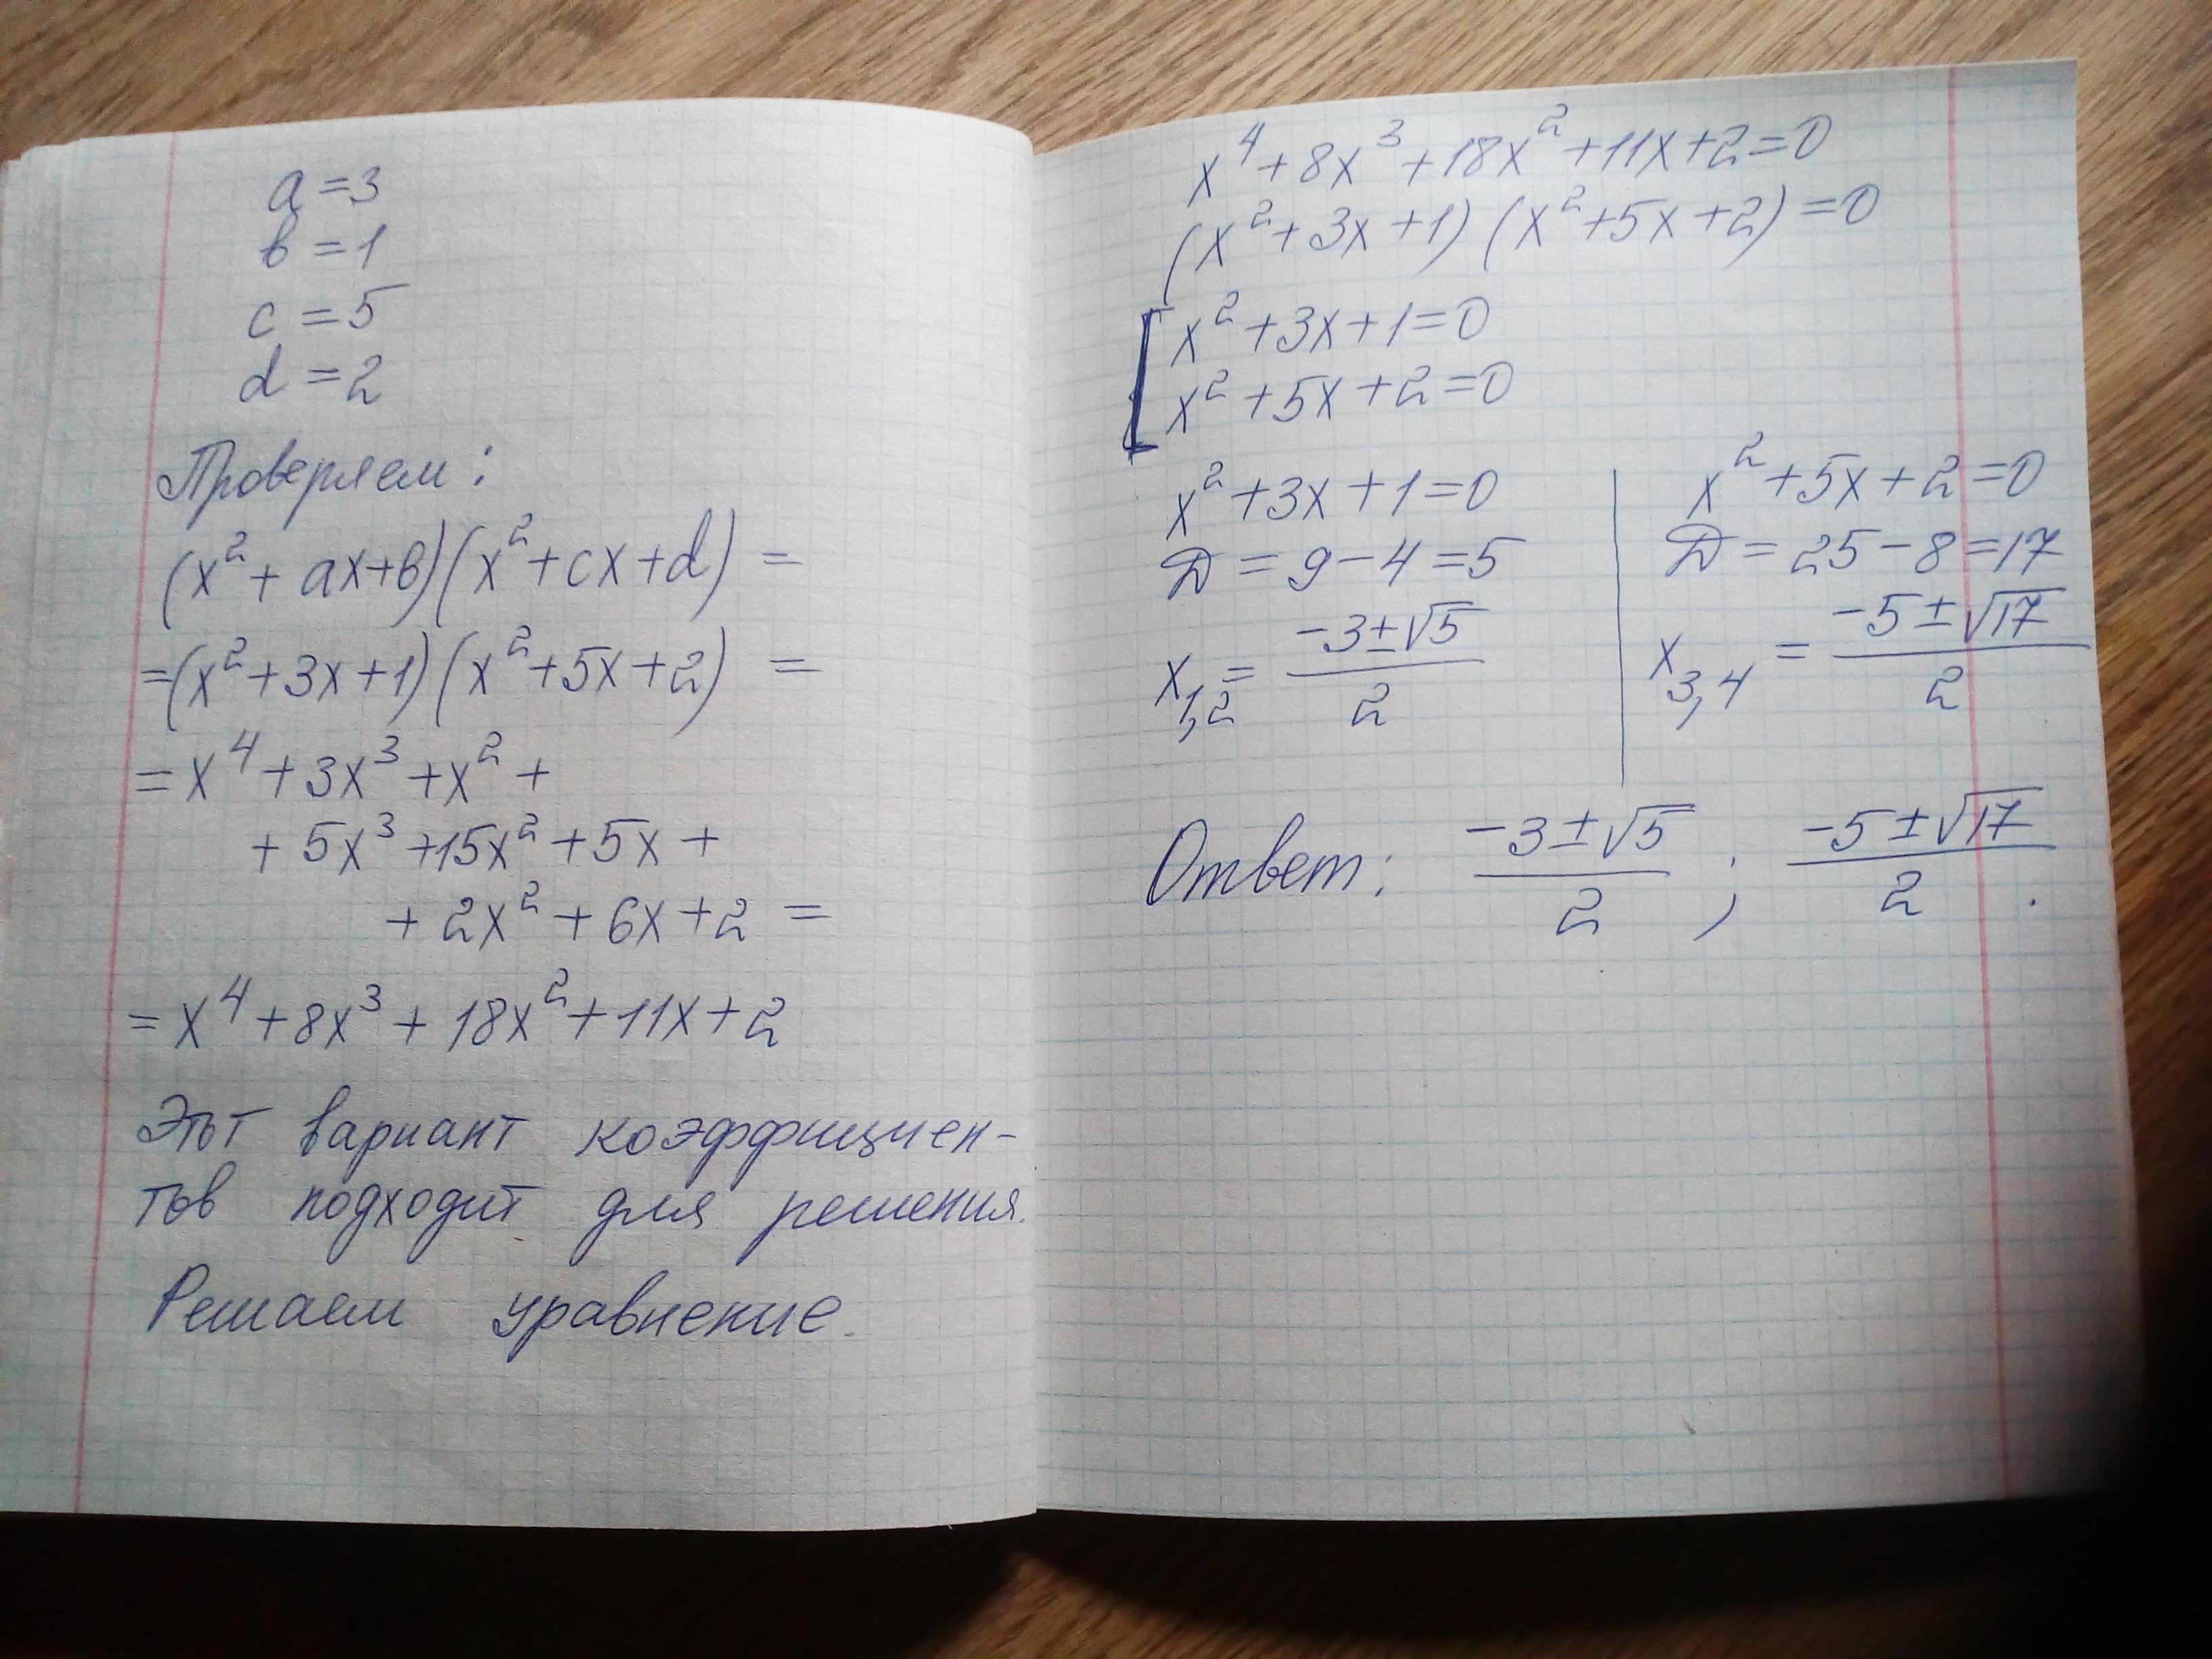 a = 3
в = 1
c = 5
d = 2
Проверяем:
(x² + ax + в)(x² + cx + d) =
= (x² + 3x + 1)(x² + 5x + 2) =
= x⁴ + 3x³ + x² +
+ 5x³ + 15x² + 5x +
+ 2x² + 6x + 2 =
= x⁴ + 8x³ + 18x² + 11x + 2
Этот вариант коэффициен-
тов подходит для решения.
Решаем уравнение.
x⁴ + 8x³ + 18x² + 11x + 2 = 0
(x² + 3x + 1)(x² + 5x + 2) = 0
[ x² + 3x + 1 = 0
x² + 5x + 2 = 0
x² + 3x + 1 = 0
D = 9 - 4 = 5
x₁,₂ = (-3 ± √5)/2
x² + 5x + 2 = 0
D = 25 - 8 = 17
x₃,₄ = (-5 ± √17)/2
Ответ: (-3 ± √5)/2 ; (-5 ± √17)/2 .